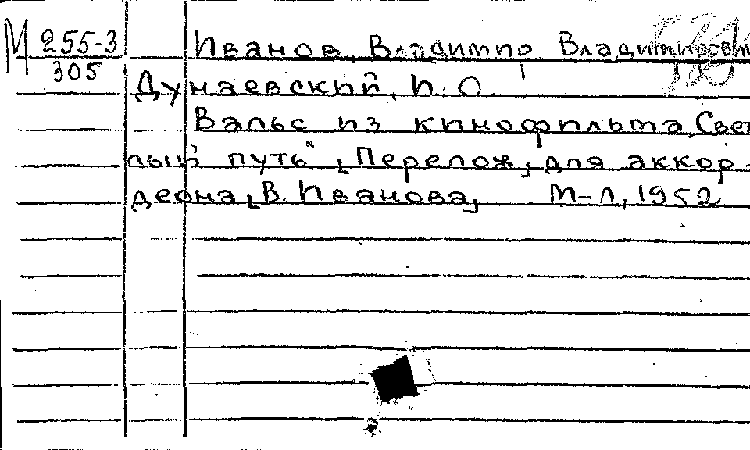 М 255-3
305
Иванов, Владимир Владимирович
Дунаевский, И. О.
Вальс из кинофильма „Свет-
лый путь“. Перелож. для аккор-
деона В. Иванова,    М-Л, 1952